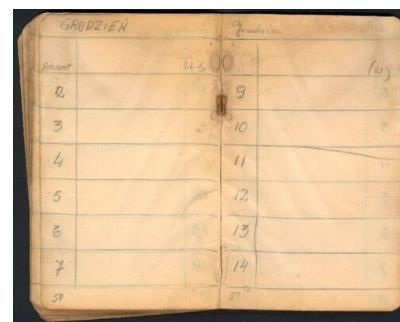 GRUDZIEŃ
Adwent
2
3
4
5
6
7
50
Grudzień
9
10
11
12
13
14
51